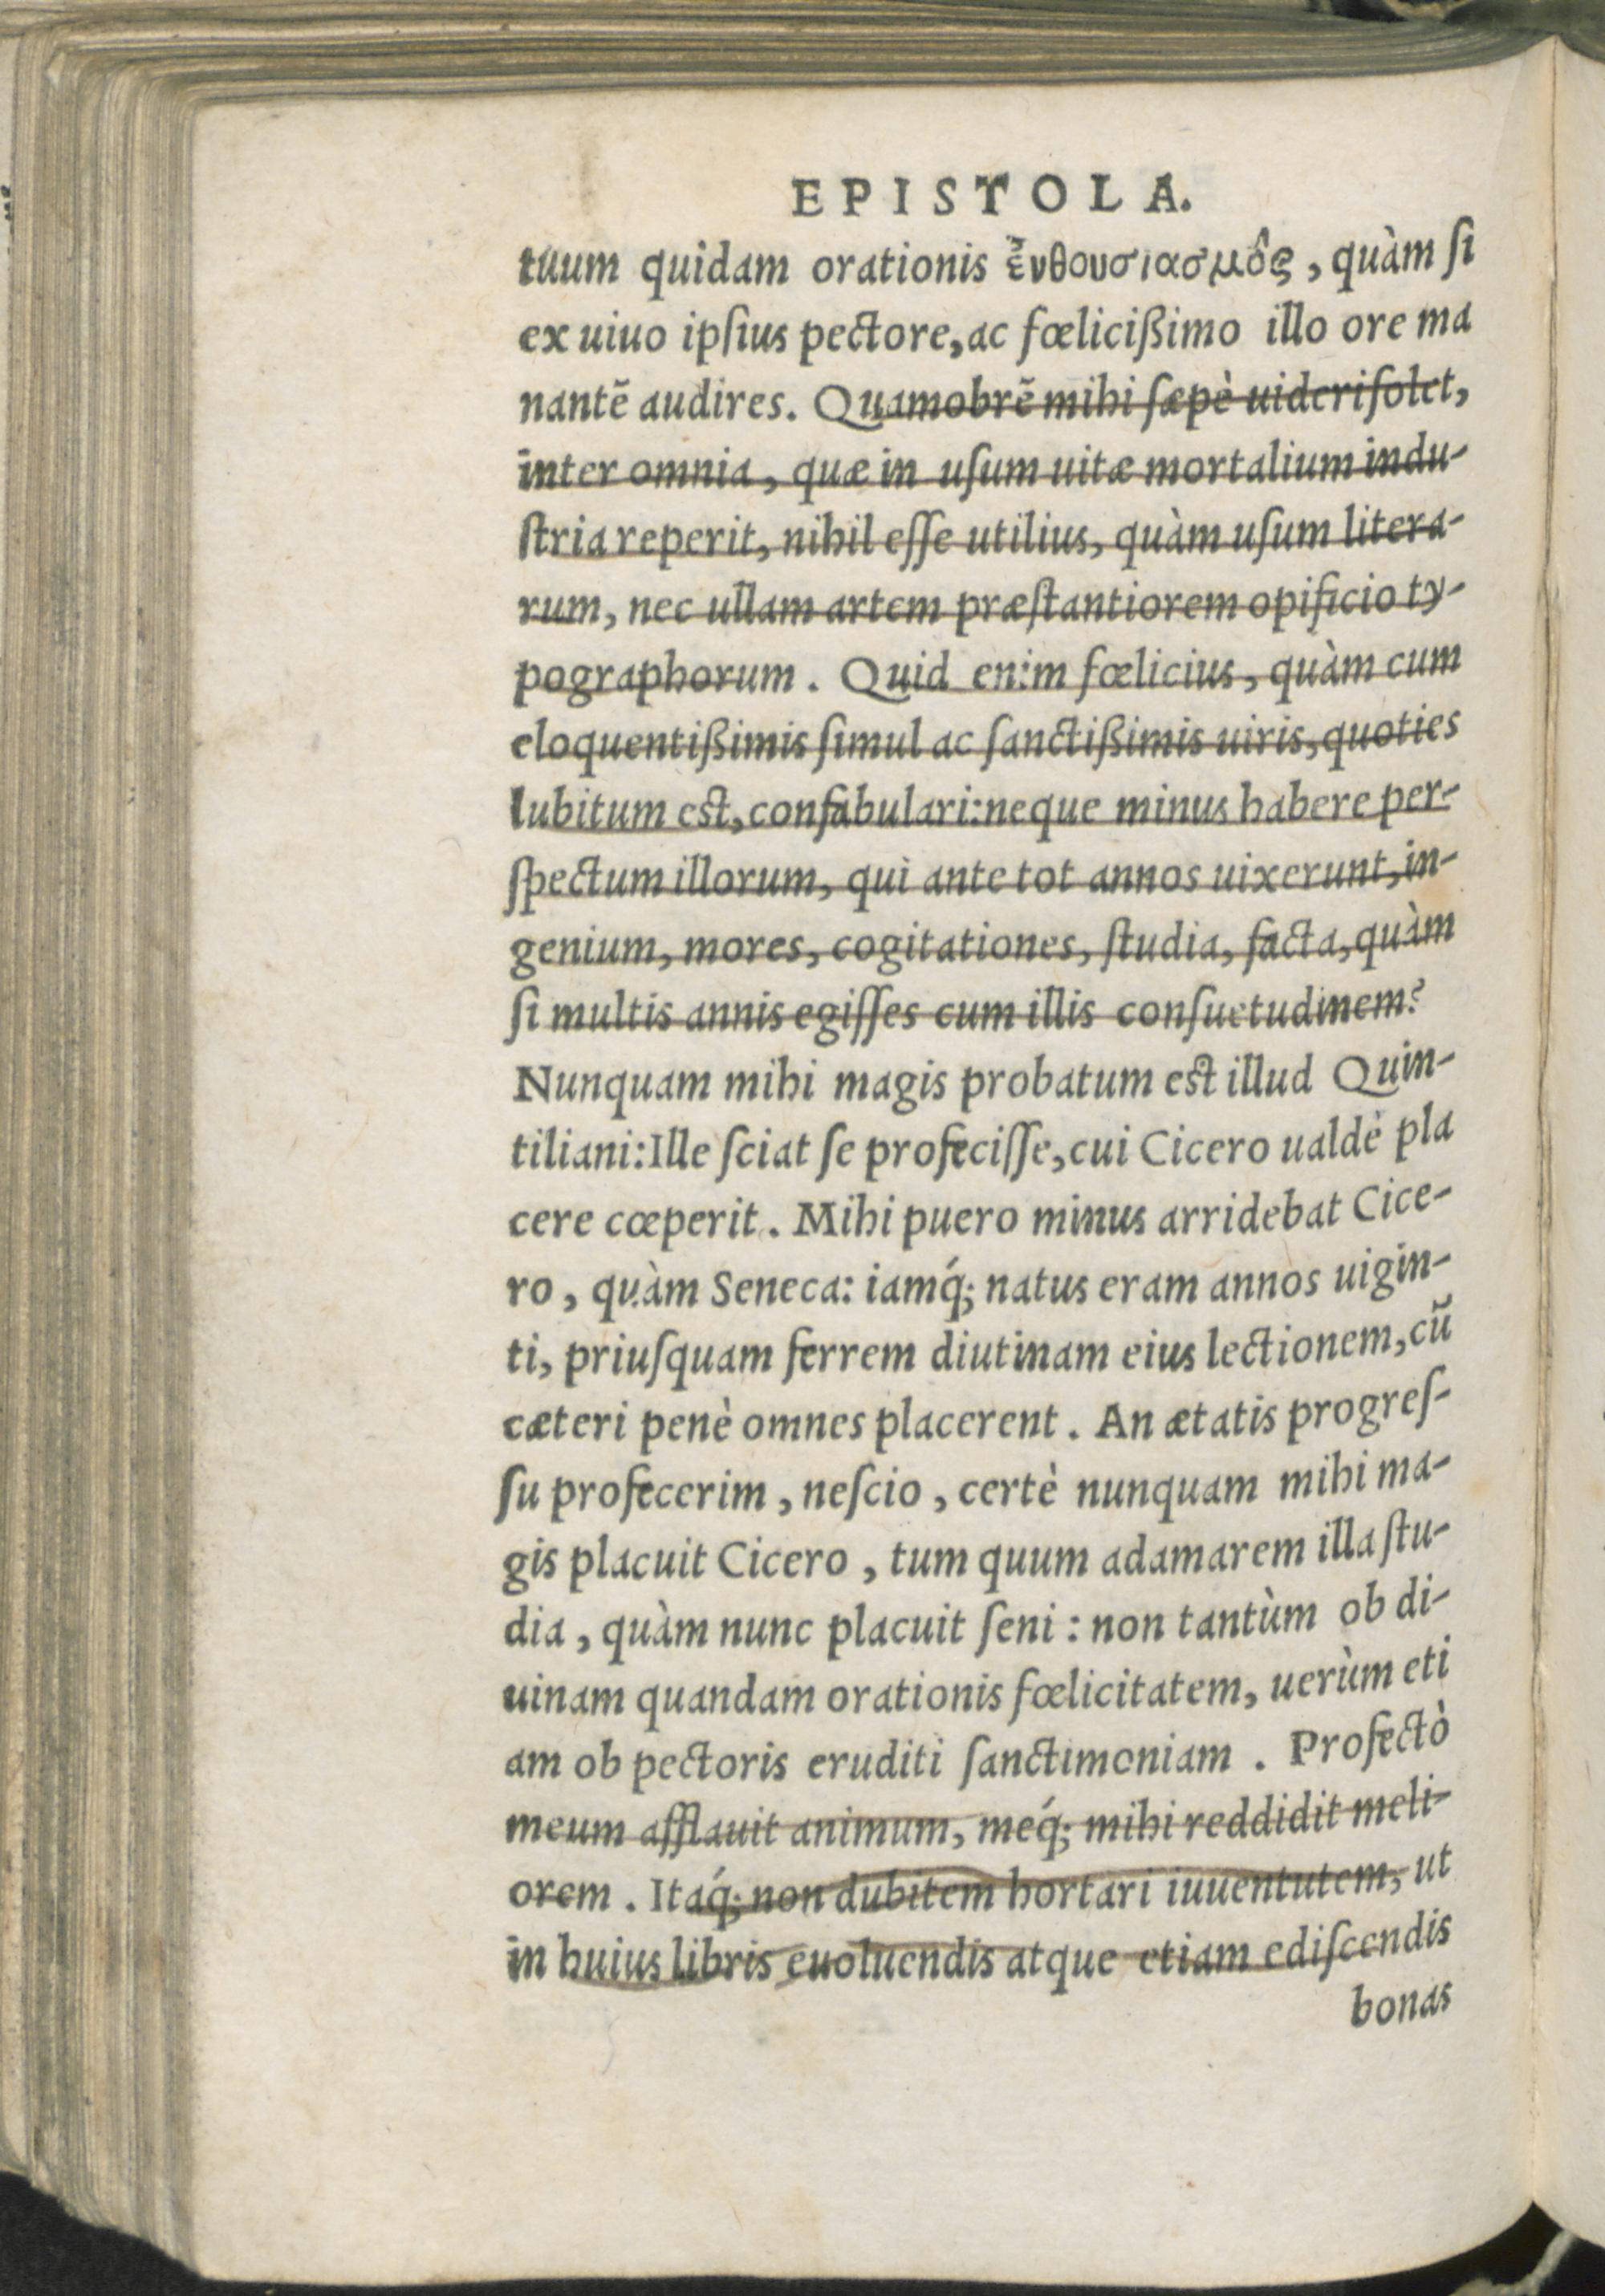 EPISTOLA.
tuum quidam orationis ἐνθουσιασμὸς, quàm ſi
ex uiuo ipſius pectore, ac fœlicißimo illo ore ma
nantẽ audires. Quamobrẽ mihi ſæpè uideri ſolet,
inter omnia, quæ in uſum uitæ mortalium indu-
ſtria reperit, nihil eſſe utilius, quàm uſum litera-
rum, nec ullam artem præſtantiorem opificio ty-
pographorum. Quid enim fœlicius, quàm cum
eloquentißimis ſimul ac ſanctißimis uiris, quoties
lubitum est, confabulari: neque minus habere per-
ſpectum illorum, qui ante tot annos uixerunt, in-
genium, mores, cogitationes, ſtudia, facta, quàm
ſi multis annis egiſſes cum illis conſuetudinem?
Nunquam mihi magis probatum est illud Quin-
tiliani: Ille ſciat ſe profeciſſe, cui Cicero ualdè pla
cere cœperit. Mihi puero minus arridebat Cice-
ro, quàm Seneca: iamq́; natus eram annos uigin-
ti, priuſquam ferrem diutinam eius lectionem, cũ
cæteri penè omnes placerent. An ætatis progreſ-
ſu profecerim, neſcio, certè nunquam mihi ma-
gis placuit Cicero, tum quum adamarem illa ſtu-
dia, quàm nunc placuit ſeni: non tantùm ob di-
uinam quandam orationis fœlicitatem, uerùm eti
am ob pectoris eruditi ſanctimoniam. Profectò
meum afflauit animum, meq́; mihi reddidit meli-
orem. Itaq́; non dubitem hortari iuuentutem, ut
in huius libris euoluendis atque etiam ediſcendis
bonas